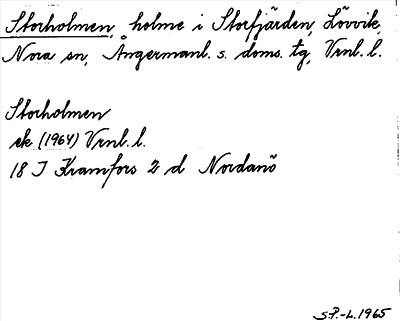 Storholmen, holme i Storfjärden, Lövvik,
Nora sn, Ångermanl. s. doms. tg, Vrnl. l.
Storholmen
ek (1964) Vrnl. l.
18 I Kramfors 2 d Nordanö
S.P.-L. 1965